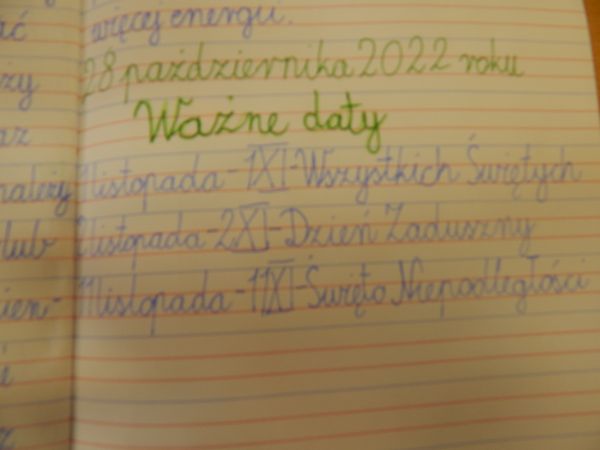 ać
ży
az
należy
lub
zien-
i
z
więcej energii.
28 października 2022 roku
Ważne daty
1listopada-1XI-Wszystkich Świętych
2listopada-2XI-Dzień Zaduszny
11listopada-11XI-Święto Niepodległości